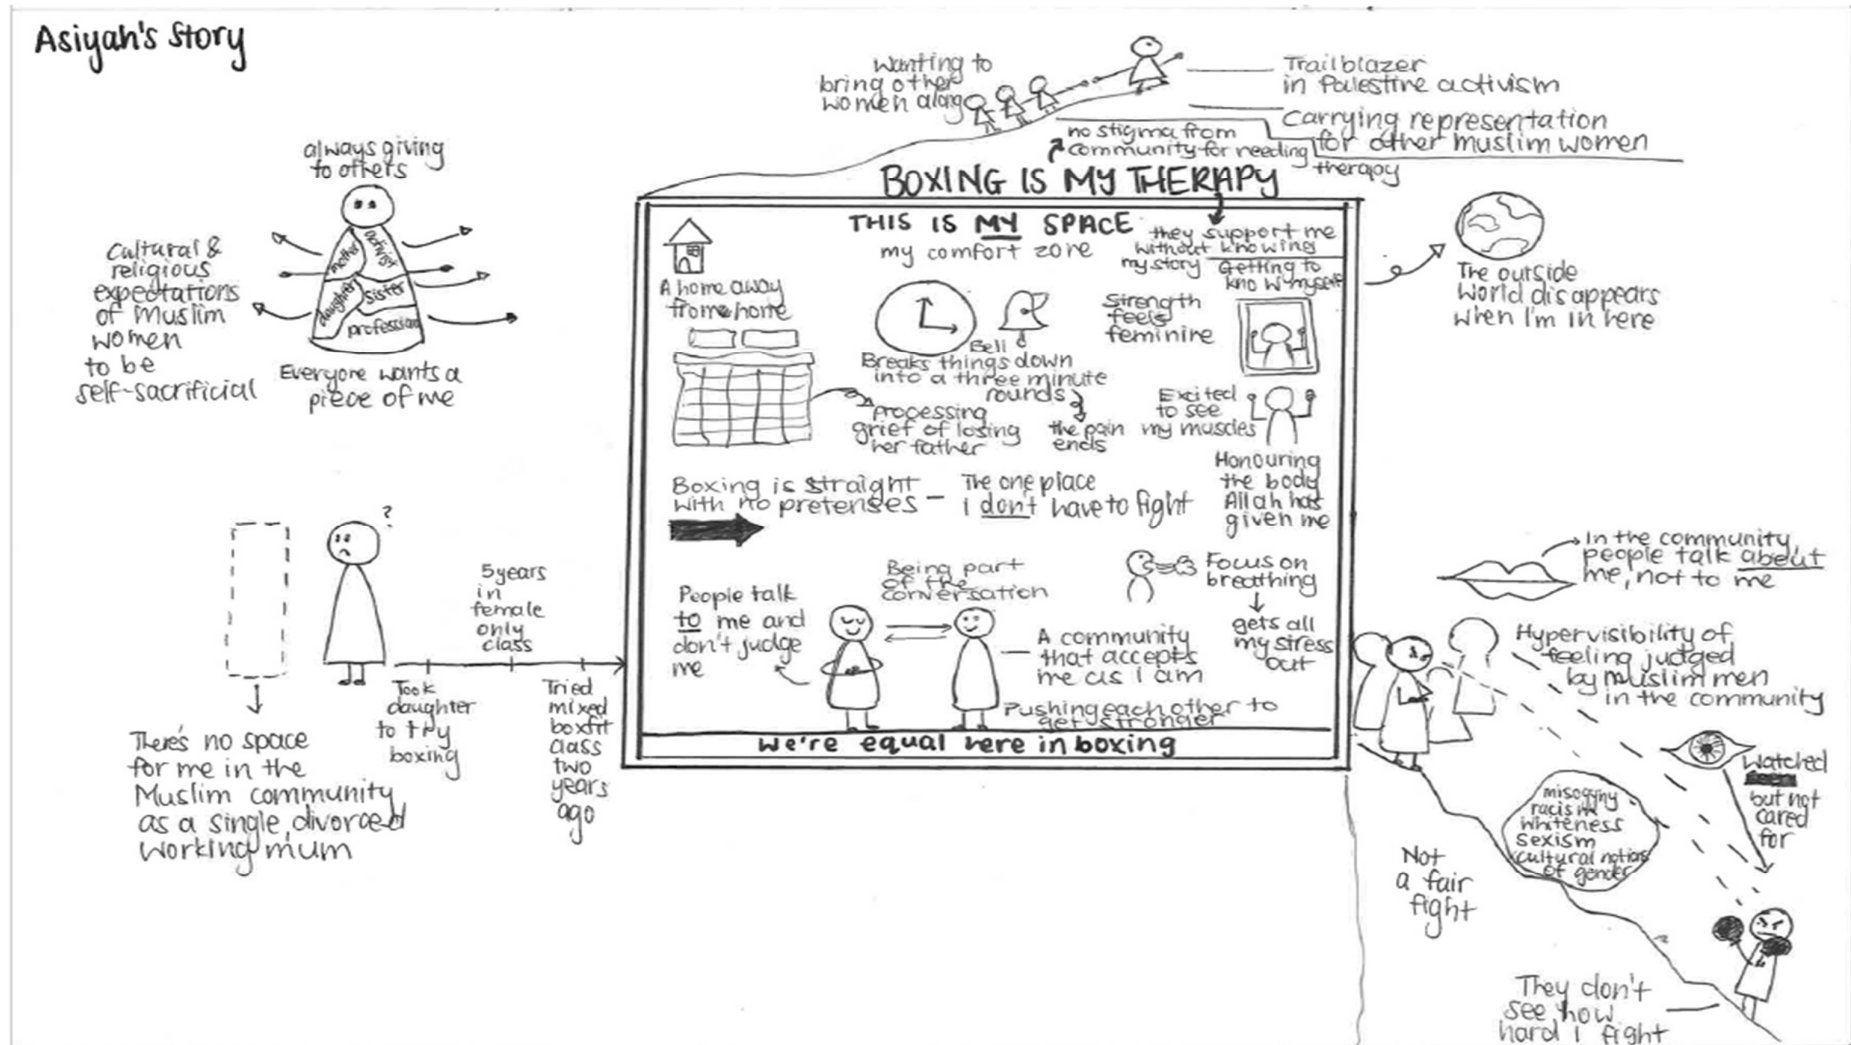 Asiyah's Story
always giving
to others
mother
activist
daughter
sister
profession
Cultural &
religious
expectations
of Muslim
women
to be
self-sacrificial
Everyone wants a
piece of me
?
There's no space
for me in the
Muslim community
as a single, divorced
working mum
Took
daughter
to try
boxing
5 years
in
female
only
class
Tried
mixed
boxfit
class
two
years
ago
Wanting to
bring other
women along
Trailblazer
in Palestine activism
Carrying representation
for other muslim women
no stigma from
community for needing
therapy
BOXING IS MY THERAPY
THIS IS MY SPACE
my comfort zone
they support me
without knowing
my story
Getting to
know myself
A home away
from home
Bell
Breaks things down
into a three minute
rounds
the pain
ends
processing
grief of losing
her father
Strength
feels
feminine
Excited
to see
my muscles
Honouring
the body
Allah has
given me
Boxing is straight
with no pretenses –
The one place
I don't have to fight
Focus on
breathing
gets all
my stress
out
People talk
to me and
don't judge
me
Being part
of the
conversation
A community
that accepts
me as I am
Pushing each other to
get stronger
We're equal here in boxing
The outside
World disappears
when I'm in here
In the community
people talk about
me, not to me
Hypervisibility of
feeling judged
by muslim men
in the community
Watched
but not
cared
for
misogyny
racism
whiteness
sexism
cultural notions
of gender
Not
a fair
fight
They don't
see how
hard I fight